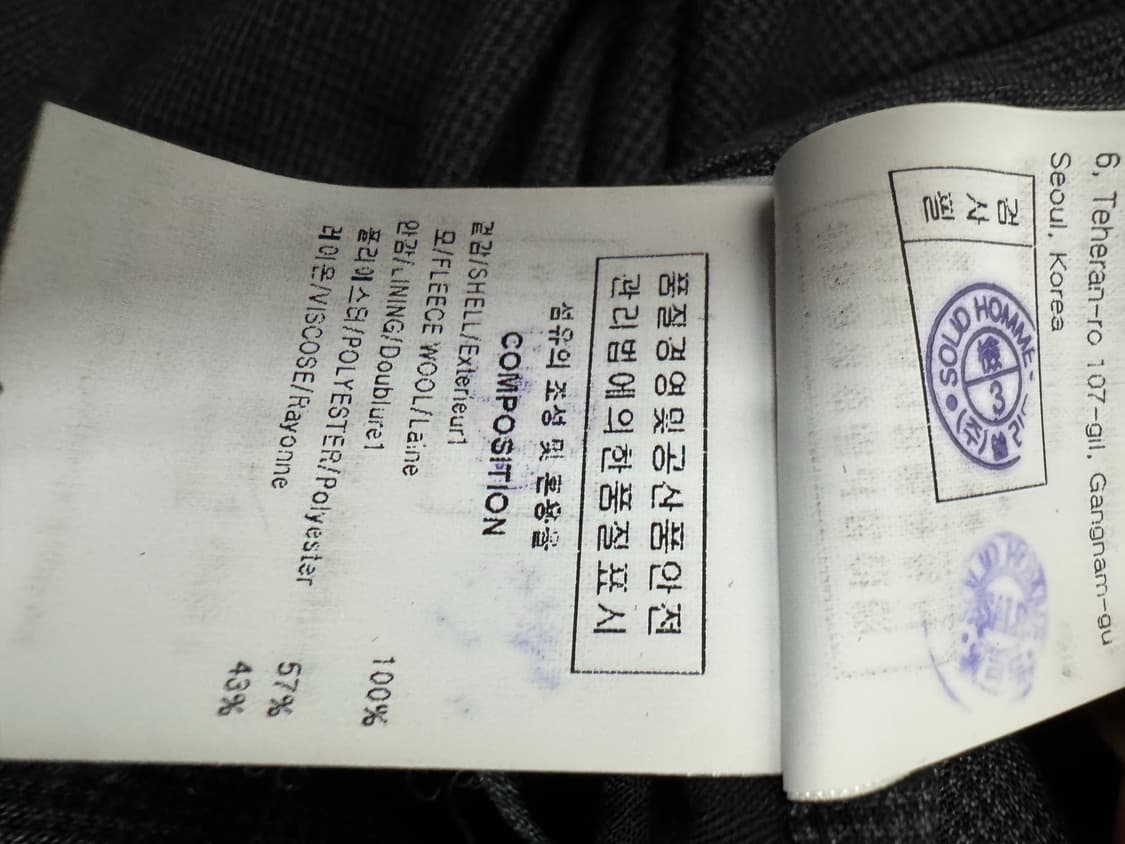 6, Teheran-ro 107-gil, Gangnam-gu
Seoul, Korea
검사필
SOLID HOMME
3
품질경영및공산품안전
관리법에의한품질표시
섬유의 조성 및 혼용율
COMPOSITION
겉감/SHELL/Exterieur1
모/FLEECE WOOL/Laine 100%
안감/LINING/Doublure1
폴리에스터/POLYESTER/Polyester 57%
레이온/VISCOSE/Rayonne 43%